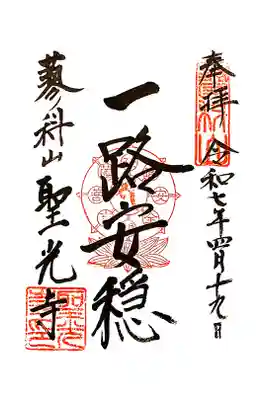 奉拝 令和七年四月十九日
一路安穏
蓼科山 聖光寺